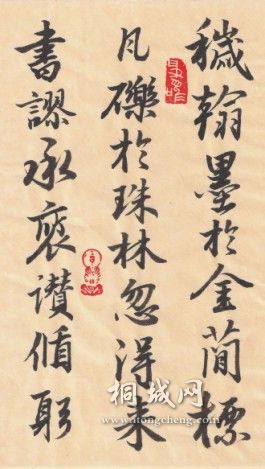 穢翰墨於金簡標
瓦礫於珠林忽得来
書謬承褒讃循躬
桐城网
www.itongcheng.com